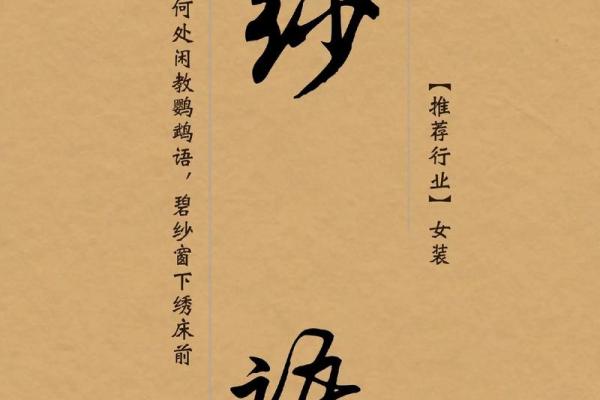 【推荐行业】女装
纱语
何处闲教鹦鹉语，碧纱窗下绣床前